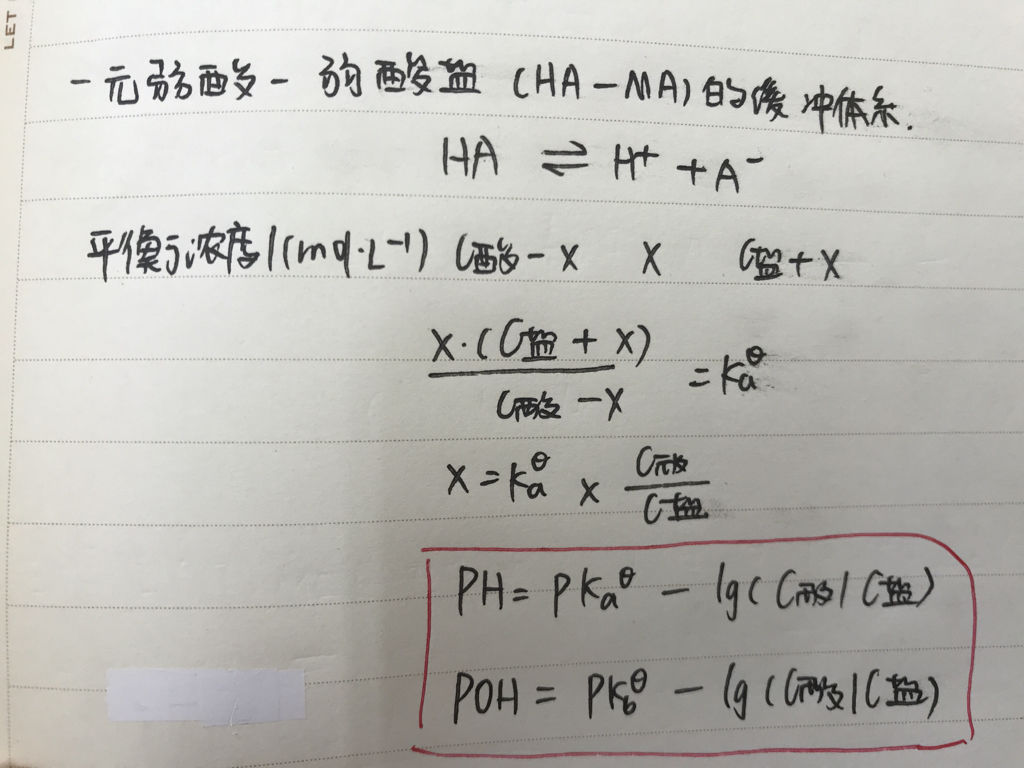 LET
一元弱酸-弱酸盐 (HA-MA)的缓冲体系.
HA ⇌ H⁺ + A⁻
平衡浓度/(mol·L⁻¹) C酸-x x C盐+x
x·(C盐+x) / C酸-x = Ka^θ
x = Ka^θ × C酸 / C盐
PH = PKa^θ - lg(C酸/C盐)
POH = PKb^θ - lg(C酸/C盐)